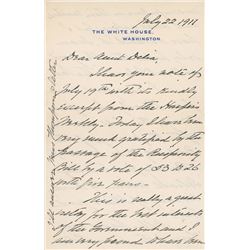 July 22 1911
THE WHITE HOUSE.
WASHINGTON.
Dear Aunt Delia,
I have your note of
July 19th with its kindly
excerpt from the Harper's
Weekly. Today I have been
very much gratified by the
passage of the Reciprocity
Bill by a vote of 53 to 26
with five pairs.
This is really a great
victory for the best interests
of the Government and I
am very proud